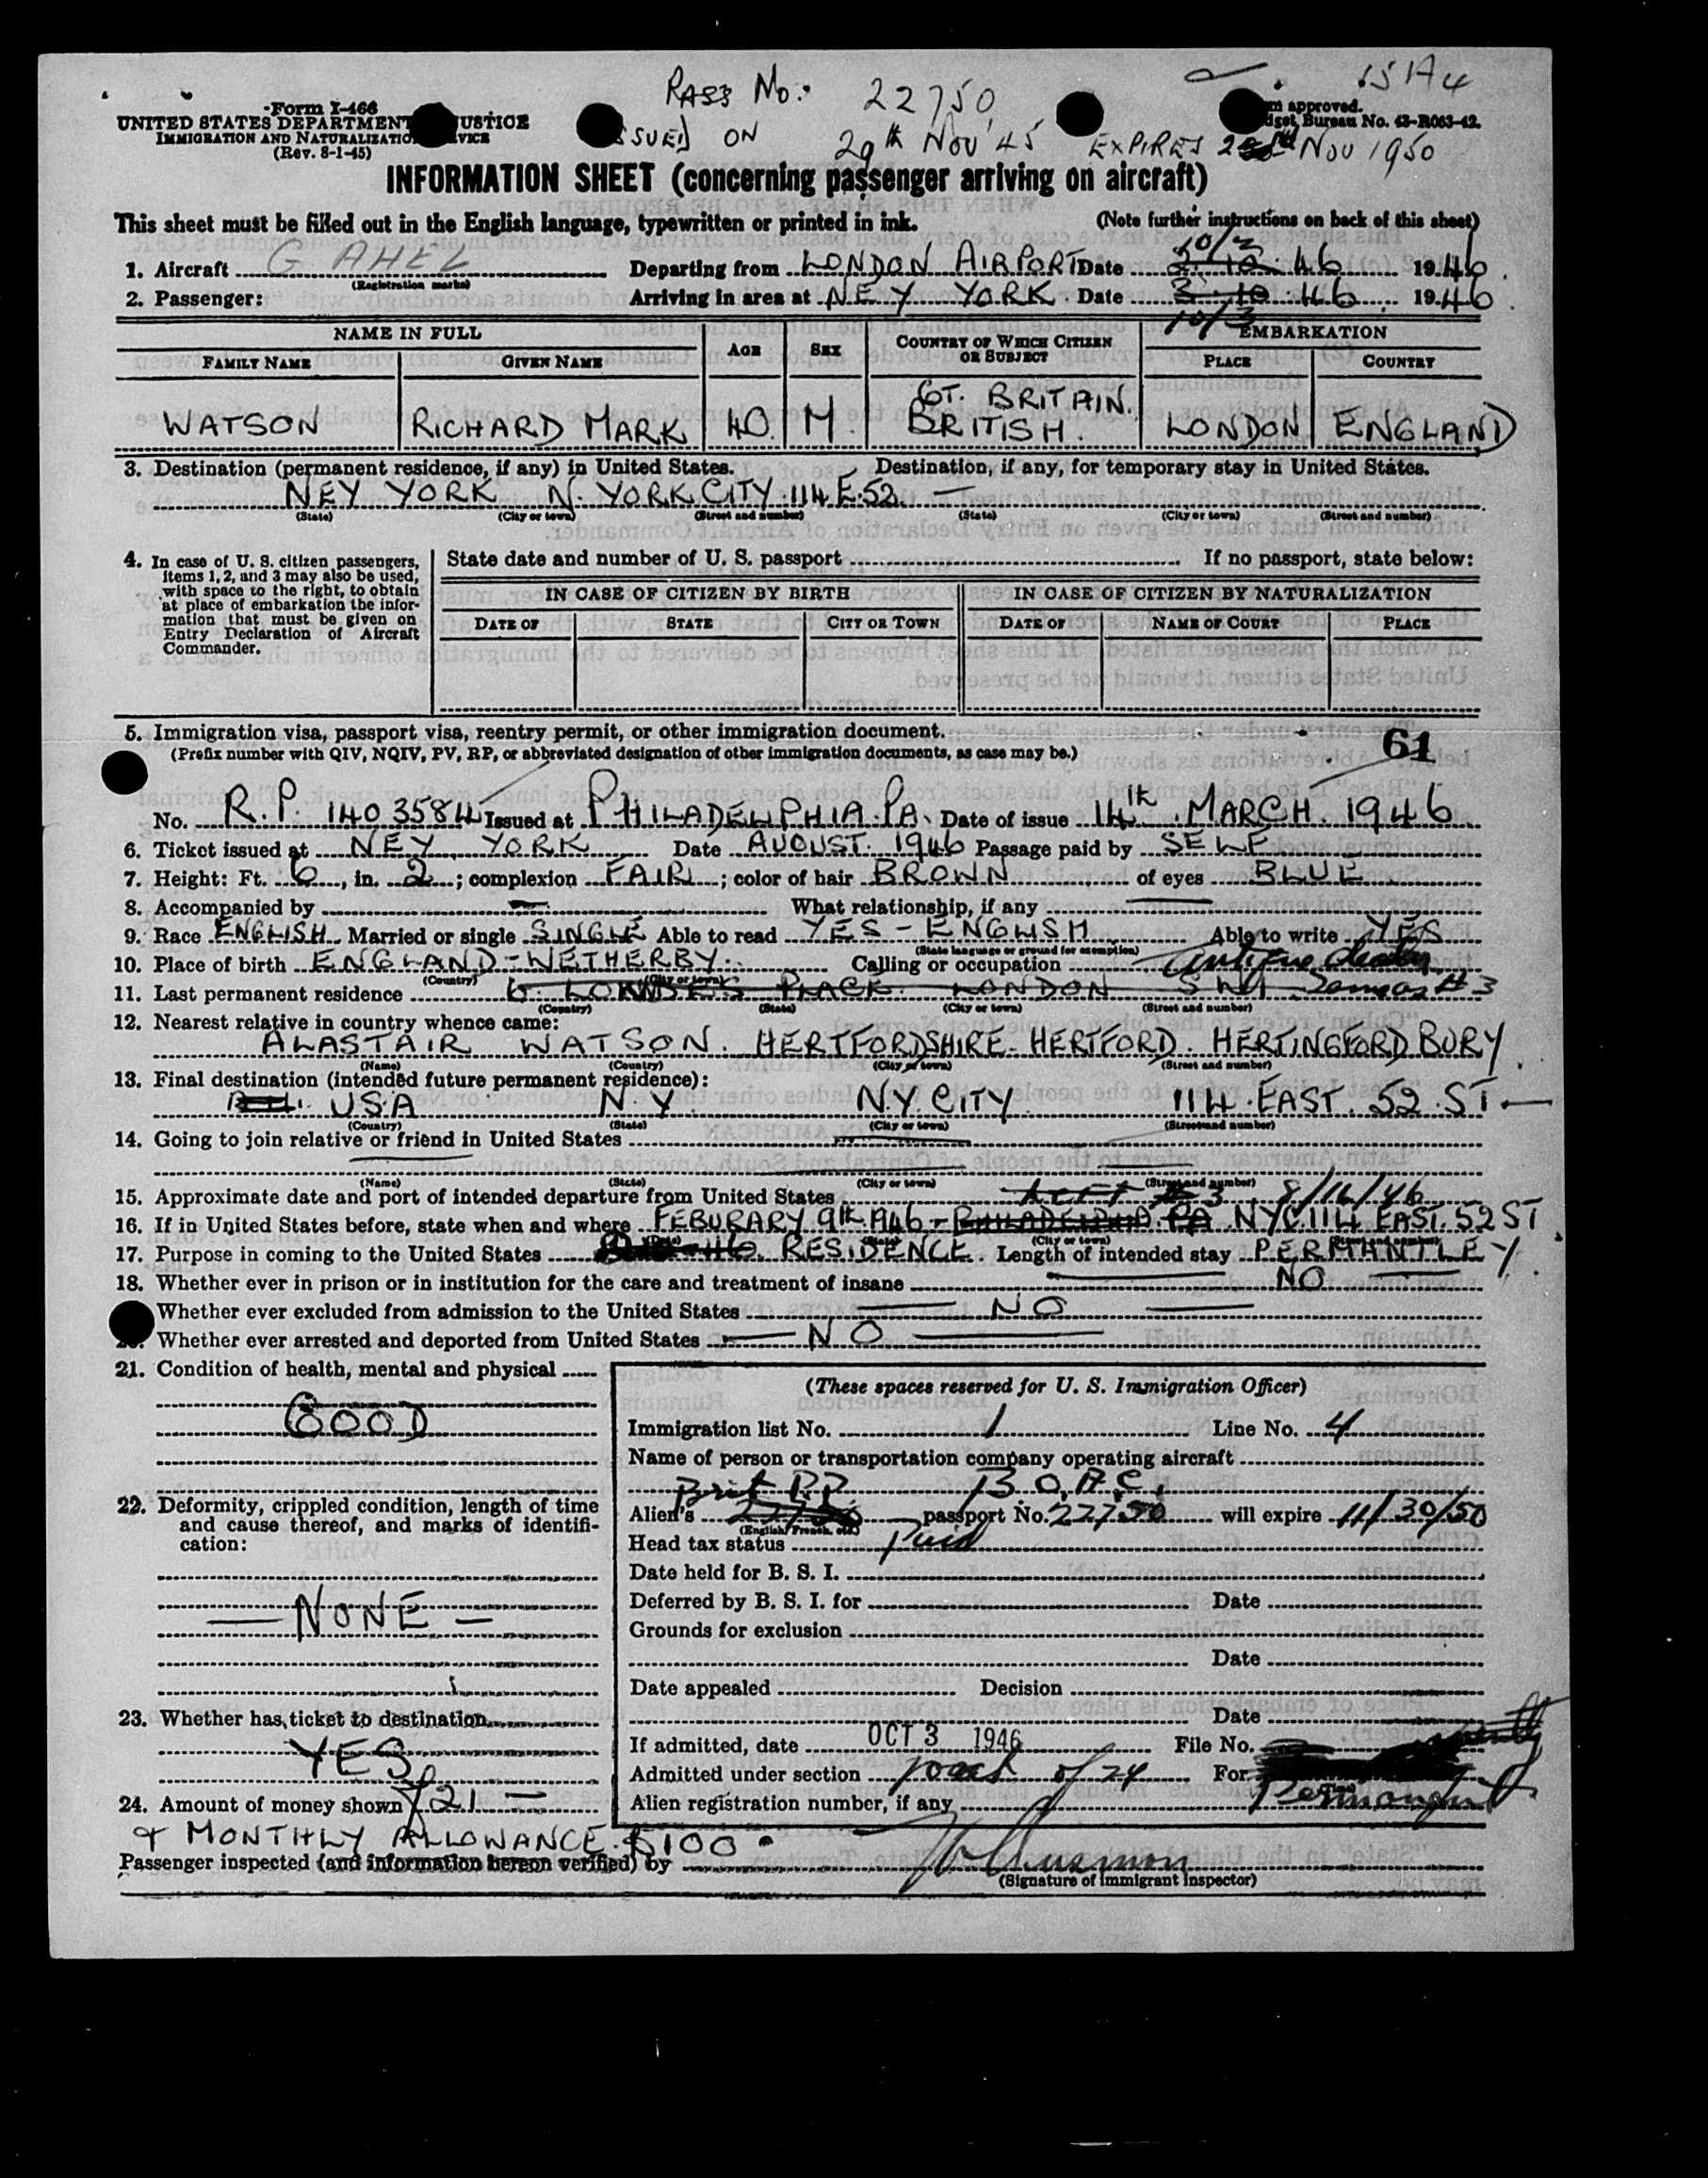 PASS No: 22750 151A4
Form I-466
UNITED STATES DEPARTMENT JUSTICE
IMMIGRATION AND NATURALIZATIO RVICE
(Rev. 8-1-45)
m approved.
dget Bureau No. 43-R063-42.
SSUED ON 29th NOV '45 EXPIRES NOV 1950
INFORMATION SHEET (concerning passenger arriving on aircraft)
This sheet must be filled out in the English language, typewritten or printed in ink. (Note further instructions on back of this sheet)
10/2
1. Aircraft G AHEL Departing from LONDON AIRPORT Date 2. 10. 46 1946
(Registration marks)
2. Passenger: Arriving in area at NEY YORK. Date 3. 10. 46. 1946
10/3
NAME IN FULL AGE SEX COUNTRY OF WHICH CITIZEN OR SUBJECT EMBARKATION
FAMILY NAME GIVEN NAME PLACE COUNTRY
GT. BRITAIN.
WATSON RICHARD MARK 40. M. BRITISH. LONDON ENGLAND
3. Destination (permanent residence, if any) in United States. Destination, if any, for temporary stay in United States.
NEY YORK N. YORK CITY. 114 E. 52. —
(State) (City or town) (Street and number) (State) (City or town) (Street and number)
4. In case of U. S. citizen passengers, items 1, 2, and 3 may also be used, with space to the right, to obtain at place of embarkation the information that must be given on Entry Declaration of Aircraft Commander.
State date and number of U. S. passport If no passport, state below:
IN CASE OF CITIZEN BY BIRTH IN CASE OF CITIZEN BY NATURALIZATION
DATE OF STATE CITY OR TOWN DATE OF NAME OF COURT PLACE
5. Immigration visa, passport visa, reentry permit, or other immigration document.
(Prefix number with QIV, NQIV, PV, RP, or abbreviated designation of other immigration documents, as case may be.)
61
No. R.P. 1403584 Issued at PHILADELPHIA. PA. Date of issue 14th. MARCH. 1946
6. Ticket issued at NEY YORK Date AUOUST. 1946 Passage paid by SELF
7. Height: Ft. 6, in. 2; complexion FAIR; color of hair BROWN of eyes BLUE
8. Accompanied by — What relationship, if any —
9. Race ENGLISH Married or single SINGLE Able to read YES - ENGLISH Able to write YES
(State language or ground for exemption)
10. Place of birth ENGLAND - WETHERBY. Calling or occupation antique dealer
(Country) (City or town)
11. Last permanent residence 6. LOWNDES PLACE LONDON SW1 Same as #3
(Country) (State) (City or town) (Street and number)
12. Nearest relative in country whence came:
ALASTAIR WATSON. HERTFORDSHIRE - HERTFORD. HERTINGFORD BURY
(Name) (Country) (City or town) (Street and number)
13. Final destination (intended future permanent residence):
USA N.Y. N.Y. CITY 114. EAST. 52. ST —
(Country) (State) (City or town) (Street and number)
14. Going to join relative or friend in United States
(Name) (State) (City or town) (Street and number)
15. Approximate date and port of intended departure from United States 8/16/46
16. If in United States before, state when and where FEBURARY 9th 1946 - PHILADELPHIA. PA NYC 114 EAST. 52 ST
(City or town)
17. Purpose in coming to the United States RESIDENCE. Length of intended stay PERMANTLEY
18. Whether ever in prison or in institution for the care and treatment of insane — NO —
Whether ever excluded from admission to the United States — NO —
20. Whether ever arrested and deported from United States — NO —
21. Condition of health, mental and physical
GOOD
22. Deformity, crippled condition, length of time and cause thereof, and marks of identification:
— NONE —
23. Whether has ticket to destination
YES
24. Amount of money shown £21 —
+ MONTHLY ALLOWANCE. $100.
(These spaces reserved for U. S. Immigration Officer)
Immigration list No. 1 Line No. 4
Name of person or transportation company operating aircraft
Brit P.P. B.O.A.C.
Alien's 22750 passport No. 22750 will expire 11/30/50
(English, French, etc.)
Head tax status Paid
Date held for B. S. I.
Deferred by B. S. I. for Date
Grounds for exclusion
Date
Date appealed Decision
Date
If admitted, date OCT 3 1946 File No.
Admitted under section of 24 For
(Time)
Alien registration number, if any
Passenger inspected (and information hereon verified) by
(Signature of Immigrant Inspector)